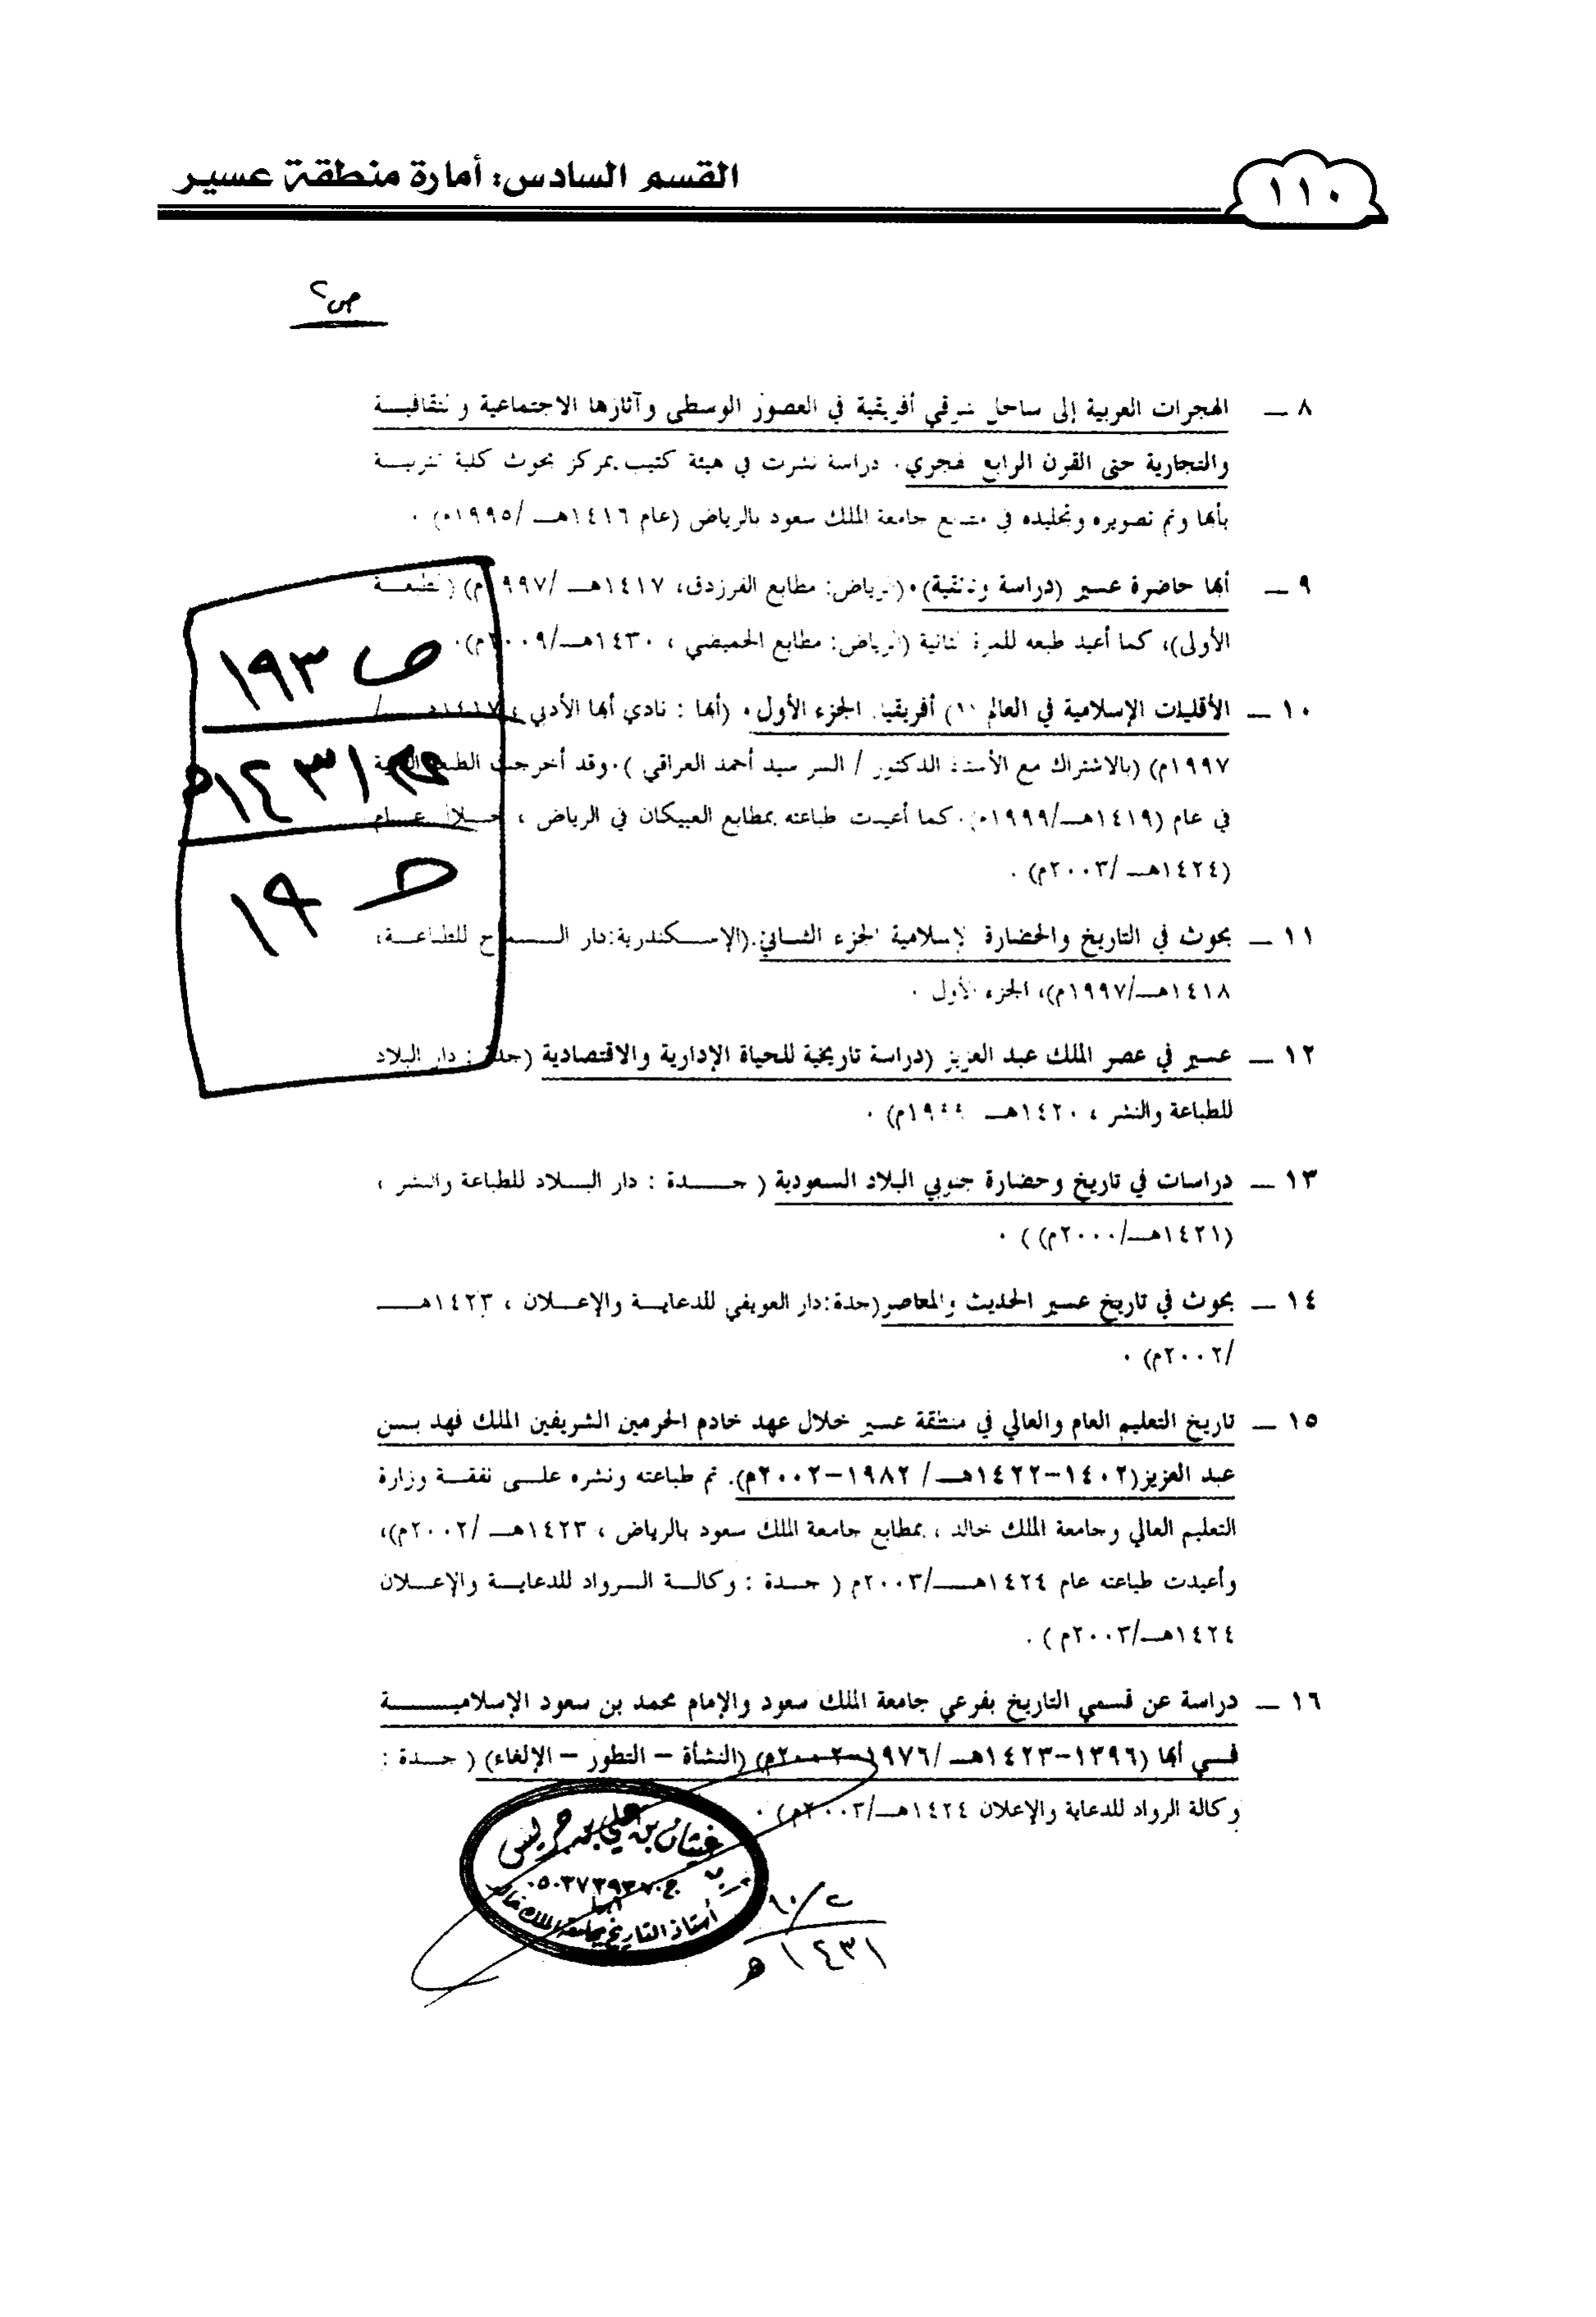 ١١٠
القسم السادس: أمارة منطقة عسير
ص٢
٨ – الهجرات العربية إلى ساحل شرقي أفريقية في العصور الوسطى وآثارها الاجتماعية والثقافية
والتجارية حتى القرن الرابع الهجري. دراسة نشرت في هيئة كتيب بمركز بحوث كلية التربية
بأبها وتم تصويره وتجليده في مطابع جامعة الملك سعود بالرياض (عام ١٤١٦هـ /١٩٩٥م) .
٩ – أبها حاضرة عسير (دراسة وثائقية). (الرياض: مطابع الفرزدق، ١٤١٧هـ /١٩٩٧م) (الطبعة
الأولى)، كما أعيد طبعه للمرة الثانية (الرياض: مطابع الحميضي ، ١٤٣٠هـ/٢٠٠٩م).
١٠ – الأقليات الإسلامية في العالم (١) أفريقيا. الجزء الأول. (أبها : نادي أبها الأدبي ، ١٤١٧هـ /
١٩٩٧م) (بالاشتراك مع الأستاذ الدكتور / السر سيد أحمد العراقي ). وقد أخرجت الطبعة الثانية
في عام (١٤١٩هـ/١٩٩٩م). كما أعيدت طباعته بمطابع العبيكان في الرياض ، خلال عام
(١٤٢٤هـ /٢٠٠٣م) .
١١ – بحوث في التاريخ والحضارة الإسلامية الجزء الثاني. (الإسكندرية:دار السماح للطباعة،
١٤١٨هـ/١٩٩٧م)، الجزء الأول .
١٢ – عسير في عصر الملك عبد العزيز (دراسة تاريخية للحياة الإدارية والاقتصادية (جدة : دار البلاد
للطباعة والنشر ، ١٤٢٠هـ ١٩٩٩م) .
١٣ – دراسات في تاريخ وحضارة جنوبي البلاد السعودية ( جدة : دار البلاد للطباعة والنشر ،
(١٤٢١هـ/٢٠٠٠م) ) .
١٤ – بحوث في تاريخ عسير الحديث والمعاصر(جدة:دار العويفي للدعاية والإعلان ، ١٤٢٣هـ
/٢٠٠٢م) .
١٥ – تاريخ التعليم العام والعالي في منطقة عسير خلال عهد خادم الحرمين الشريفين الملك فهد بن
عبد العزيز(١٤٠٢-١٤٢٢هـ/ ١٩٨٢-٢٠٠٢م). تم طباعته ونشره على نفقة وزارة
التعليم العالي وجامعة الملك خالد ، بمطابع جامعة الملك سعود بالرياض ، ١٤٢٣هـ /٢٠٠٢م)،
وأعيدت طباعته عام ١٤٢٤هـ/٢٠٠٣م ( جدة : وكالة الرواد للدعاية والإعلان
١٤٢٤هـ/٢٠٠٣م ) .
١٦ – دراسة عن قسمي التاريخ بفرعي جامعة الملك سعود والإمام محمد بن سعود الإسلامية
في أبها (١٣٩٦-١٤٢٣هـ /١٩٧٦-٢٠٠٢م) (النشأة – التطور – الإلغاء) ( جدة :
وكالة الرواد للدعاية والإعلان ١٤٢٤هـ/٢٠٠٣م) .
ص ١٩٣
١٤٣١هـ
ح ١٩
غيثان بن علي بن جريس
أبها
أستاذ التاريخ بجامعة الملك خالد
١٤٣١هـ